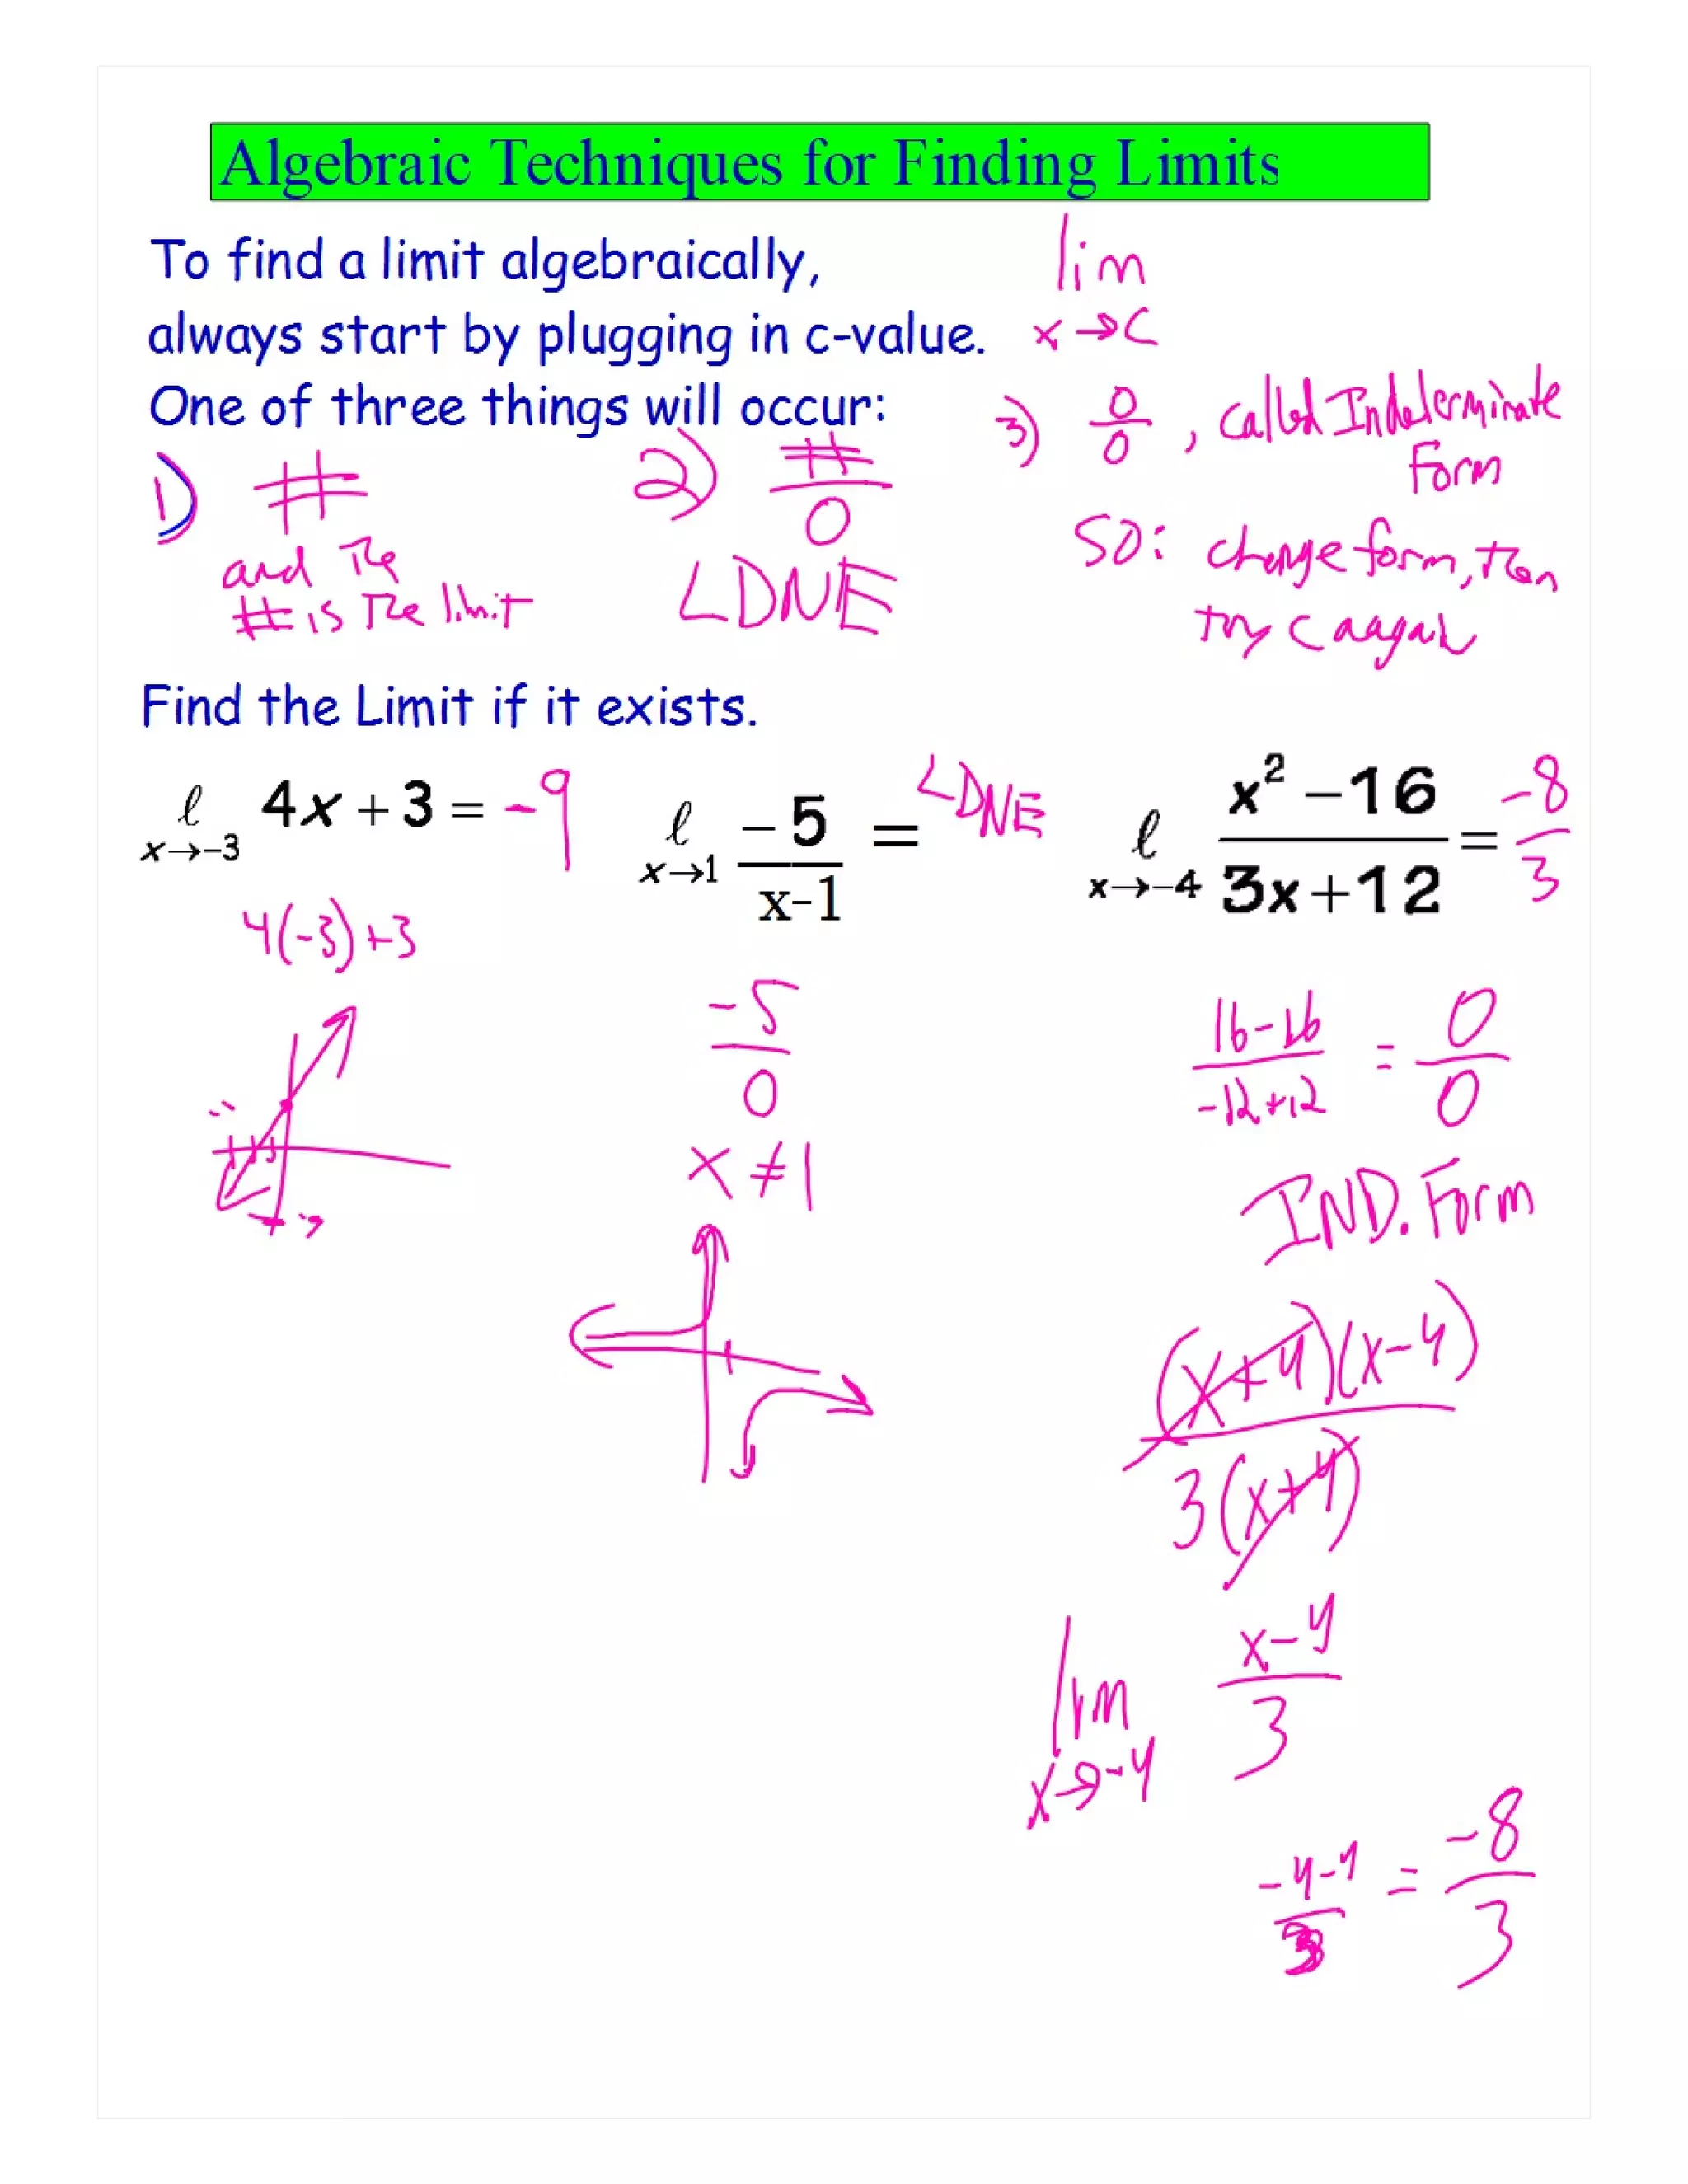 Algebraic Techniques for Finding Limits
To find a limit algebraically,
always start by plugging in c-value.
One of three things will occur:
lim
x→c
1) #
and the
# is the limit
2) #/0
LDNE
3) 0/0 , called Indeterminate
Form
SO: change form, then
try C aagain
Find the Limit if it exists.
ℓ 4x + 3 = -9
x→-3
4(-3)+3
ℓ -5/x-1 = LDNE
x→1
-5
0
x ≠ 1
ℓ x² -16 / 3x+12 = -8/3
x→-4
16-16 / -12+12 = 0/0
IND. Form
(x+4)(x-4)
3(x+4)
lim x-4/3
x→-4
-4-4/3 = -8/3